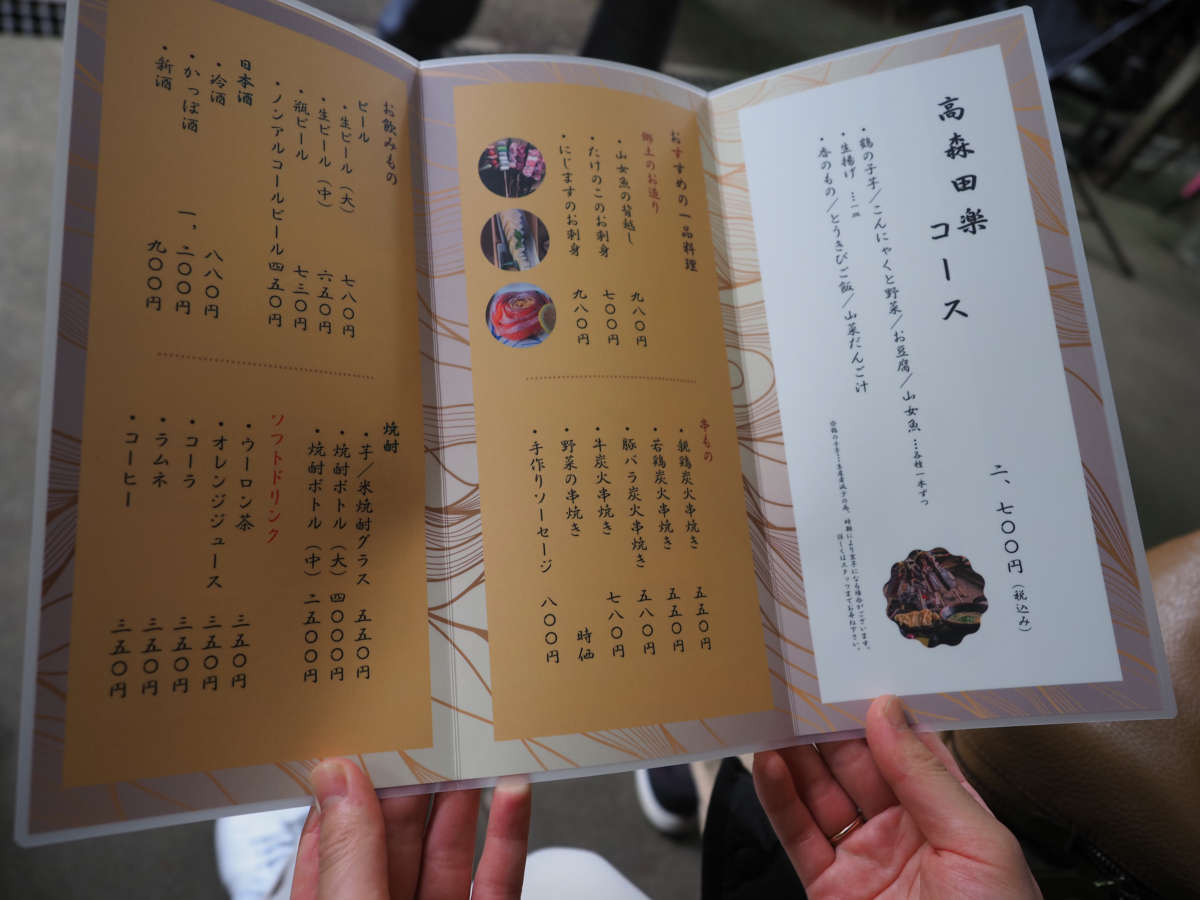 高森田楽
コース
・鶴の子芋／こんにゃくと野菜／お豆腐／山女魚…各種一本ずつ
・生揚げ …一皿
・香のもの／とうきびご飯／山菜だんご汁
二、七〇〇円（税込み）
詳しくはスタッフまでお尋ね下さい。
おすすめの一品料理
郷土のお造り
・山女魚の背越し 九八〇円
・たけのこのお刺身 七〇〇円
・にじますのお刺身 九八〇円
串もの
・親鶏炭火串焼き 五五〇円
・若鶏炭火串焼き 五五〇円
・豚バラ炭火串焼き 五八〇円
・牛炭火串焼き 七八〇円
・野菜の串焼き 時価
・手作りソーセージ 八〇〇円
お飲みもの
ビール
・生ビール（大） 七八〇円
・生ビール（中） 六五〇円
・瓶ビール 七三〇円
・ノンアルコールビール 四五〇円
日本酒
・冷酒 八八〇円
・かっぽ酒 一、二〇〇円
・新酒 九〇〇円
焼酎
・芋／米焼酎グラス 五五〇円
・焼酎ボトル（大） 四〇〇〇円
・焼酎ボトル（中） 二五〇〇円
ソフトドリンク
・ウーロン茶 三五〇円
・オレンジジュース 三五〇円
・コーラ 三五〇円
・ラムネ 三五〇円
・コーヒー 三五〇円